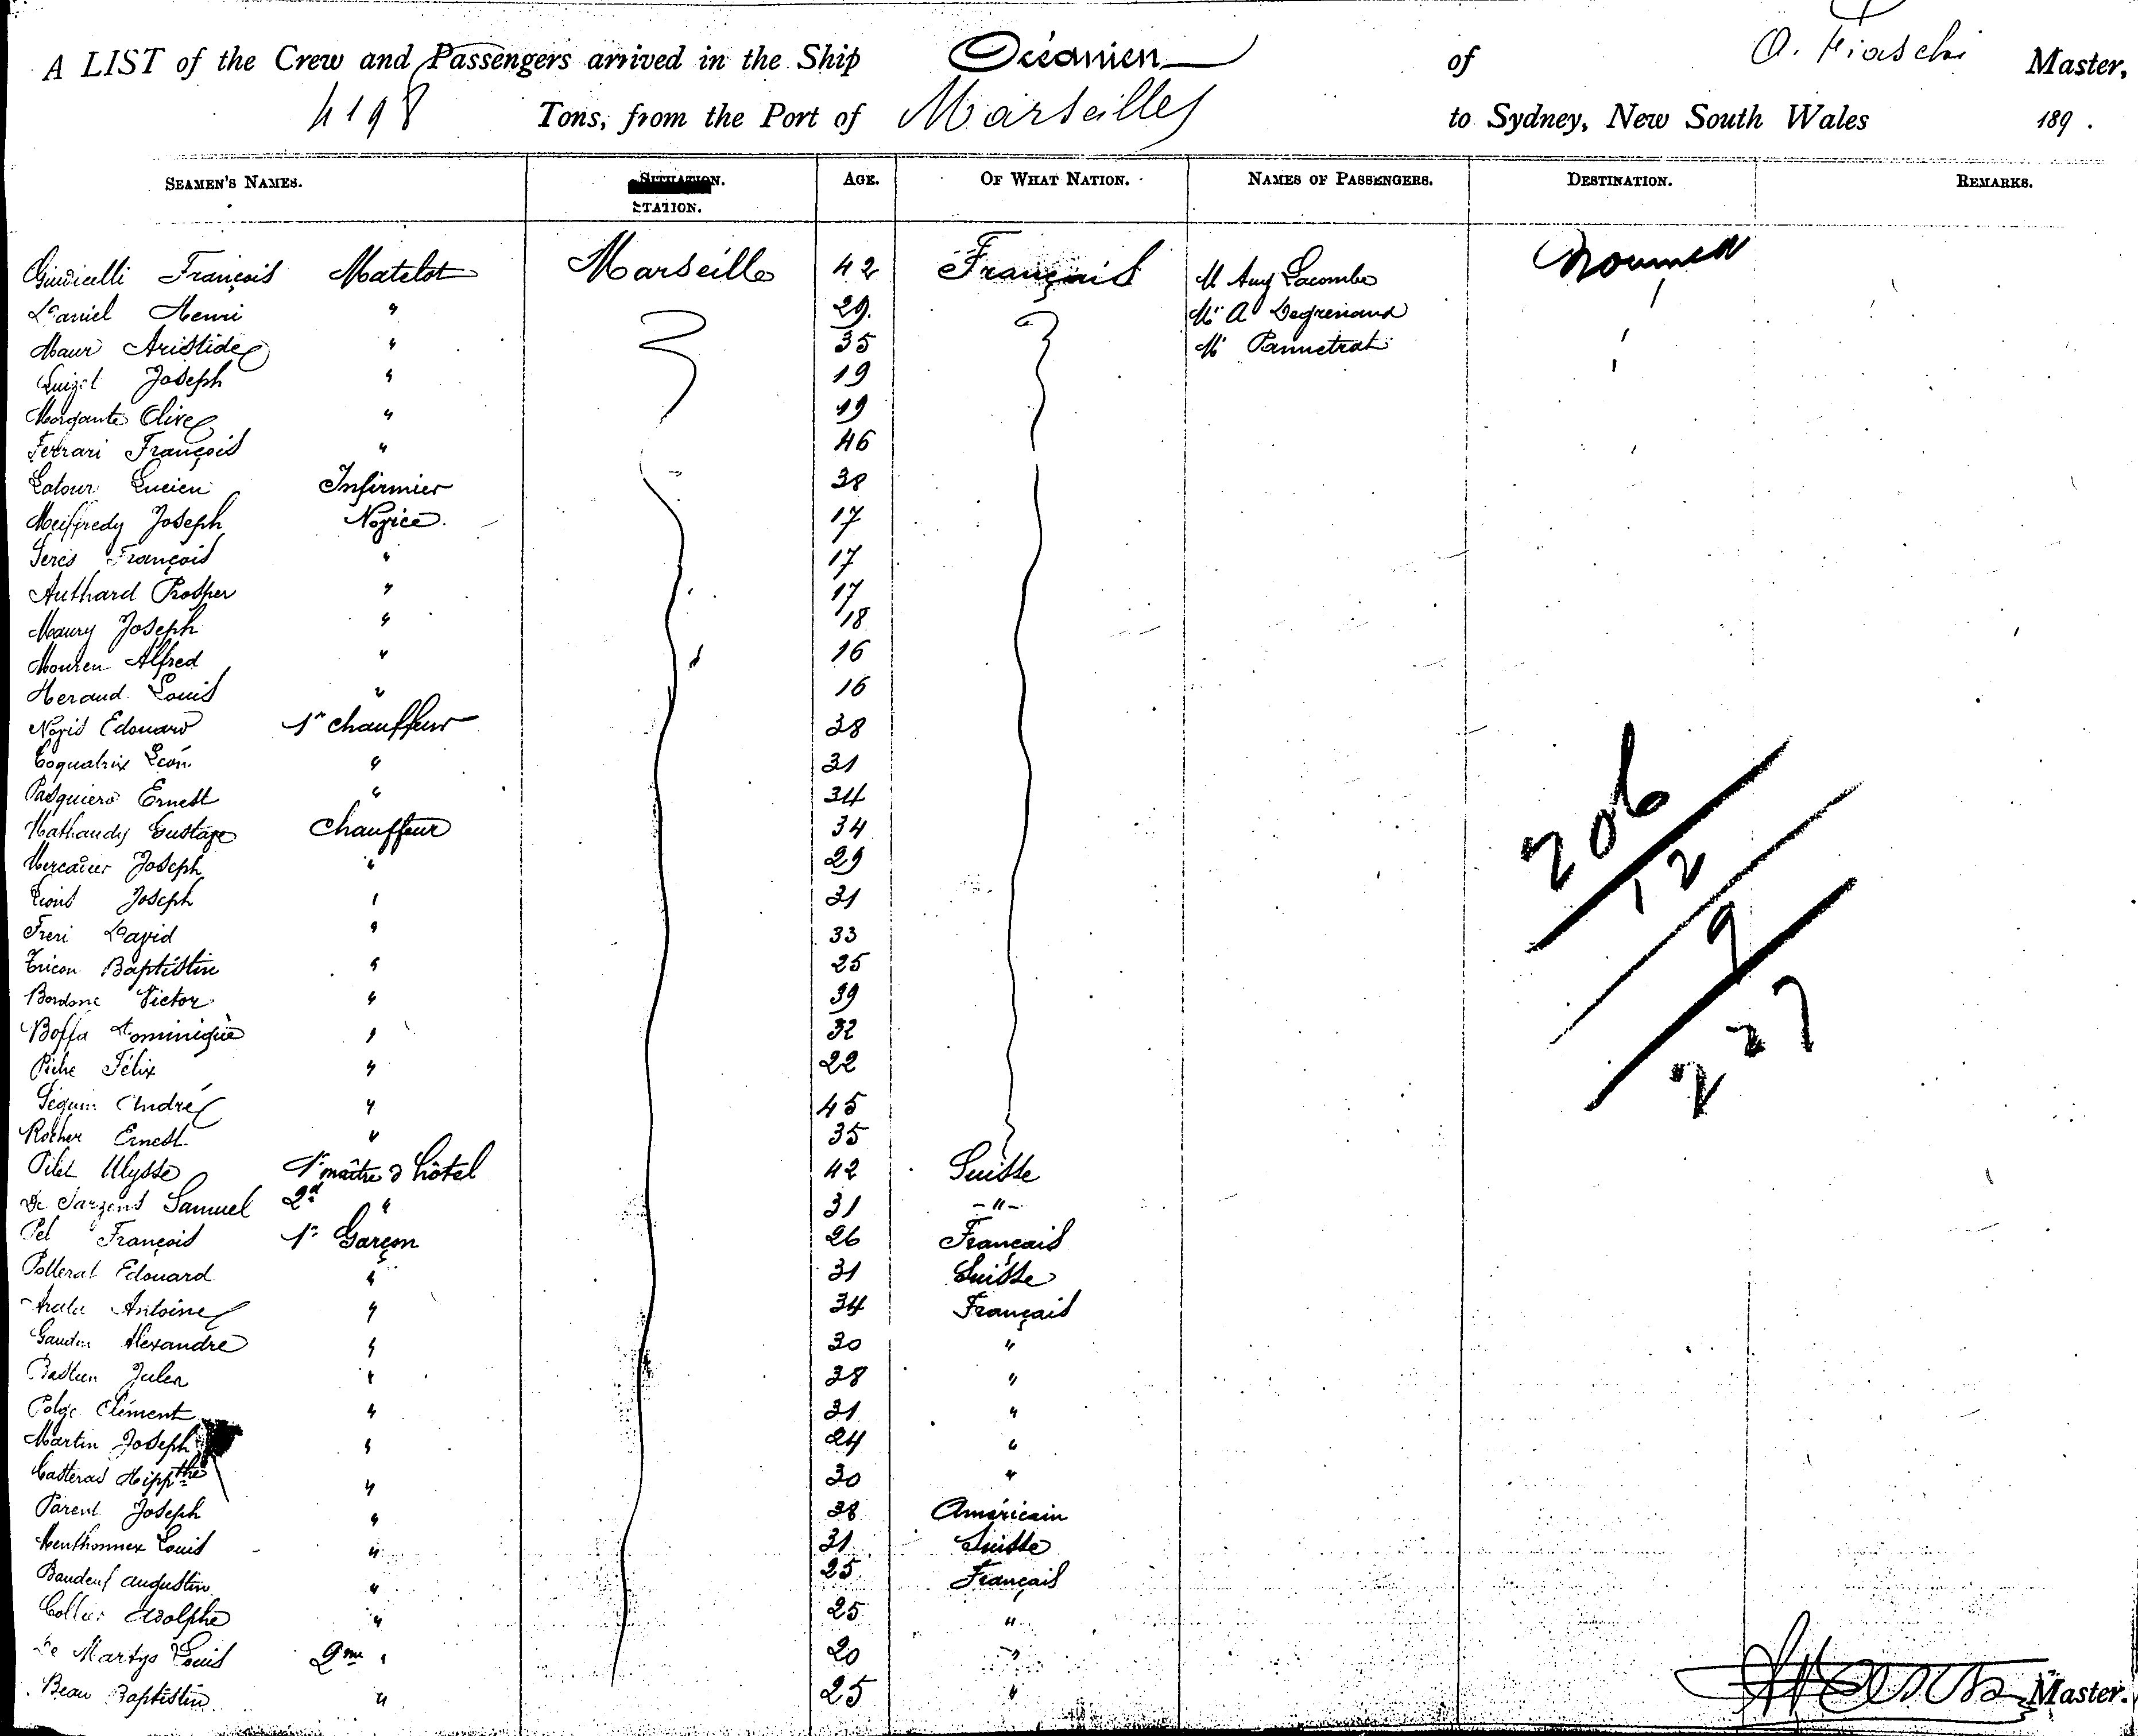 A LIST of the Crew and Passengers arrived in the Ship Océanien of O. Fiaschi Master,
4198 Tons, from the Port of Marseilles to Sydney, New South Wales 189 .
SEAMEN'S NAMES. SITUATION. AGE. OF WHAT NATION. NAMES OF PASSENGERS. DESTINATION. REMARKS.
STATION.
Giudicelli François Matelot Marseille 42 Français M Aug Lacombe Noumea
Daniel Henri " 29. Mr A Degrenand
Maur Aristide " 35 Mr Pannetrat
Joseph " 19
Morgante Olive " 19
Ferrari François " 46
Latour Lucien Infirmier 38
Meiffredy Joseph Novice. 17
François " 17
Authard Prosper " 17
Maury Joseph " 18
Mouren Alfred " 16
Heraud Louis " 16
Novis Edouard 1r chauffeur 38
Coquatrix Léon " 31
Pasquiero Ernest " 34
Mathaudy Gustave Chauffeur 34
Mercadier Joseph " 29
Lions Joseph " 31
Freri David " 33
Tricon Baptistin " 25
Bordone Victor " 39
Boffa Dominique " 32
Piche Félix " 22
Séguin André " 45
Rocher Ernest " 35
Pilet Ulysse 1r maître d'hôtel 42 Suisse
De Sarzens Samuel 2d " 31 -"-
Pel François 1r Garçon 26 Français
Polleral Edouard " 31 Suisse
Antoine " 34 Français
Gaudin Alexandre " 30 "
Jules " 38 "
Polge Clément " 31 "
Martin Joseph " 24 "
Casteras Hippthe " 30 "
Parent Joseph " 38 Américain
Menthonnex Louis " 31 Suisse
Baudeuf Augustin " 25 Français
Collier Adolphe " 25 "
De Martys Louis 2me " 20 "
Beau Baptistin " 25 "
206
12
9
227
Master.